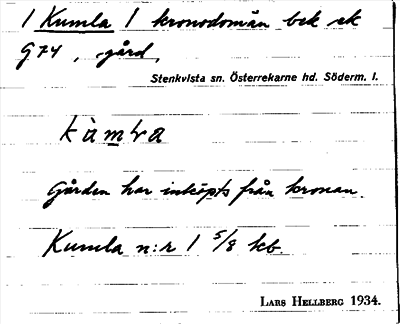 1 Kumla 1 kronodomän bek ek
G 74, gård,
Stenkvista sn. Österrekarne hd. Söderm. l.
Gården har inköpts från kronan.
Kumla n:r 1 5/8 kb
LARS HELLBERG 1934.